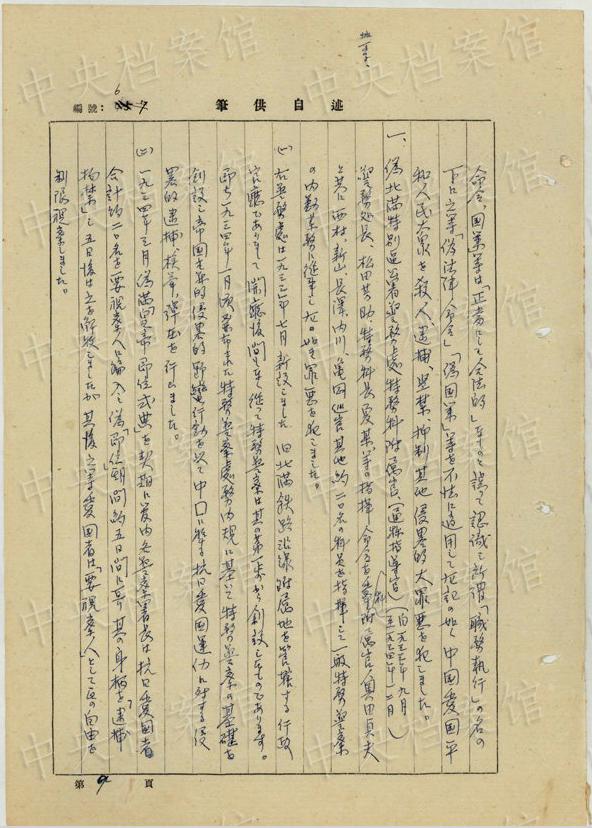 編號：
6
述自供筆
命令、国策等は「正当にして合法的」なものと誤って認識し所謂「職務執行」の名の
下に之等「偽法律」「命令」「偽国策」等を不法に適用して左記の如く中国愛国平
和人民大衆を殺人、逮捕、監禁、抑制其他侵略的大罪悪を犯しました。
一、偽北満特別区公署警務処特務科附属官（通称指導官）（自一九三三年九月 至一九三四年二月）
警務処長、松田芳助、特務科長夏某等の指揮命令を受け附属官奥田貞夫
と共に西村、新山、長澤、内川、亀岡属官其他約二〇名の科員を指揮して一般特務警察
の内勤業務に従事し左の如き罪悪を犯しました。
(一) 右警務処は一九三三年七月新設しました 旧北満鉄路沿線附属地を管轄する行政
官庁でありまして開庁後間もなく従って特務警察は其の第一歩から創設したものであります。
即ち一九三四年一月頃発布された特務警察処務内規に基いて特務警察の基礎を
創設し帝国主義的侵略的野蛮行動を以て中国に於る抗日愛国運動に対する侵
略的逮捕、検挙、弾圧を行いました。
(二) 一九三四年三月偽満皇帝即位式典を契機に管内各警察署長は抗日愛国者
合計約二〇名を要視察人に編入し偽「即位」期間約五日間に亘り其の身柄を「逮捕
拘禁」し五日後は之を解放しましたが 其後之等愛国者は「要視察人」として一切の自由を
制限視察しました。
第 9 頁
中央档案馆